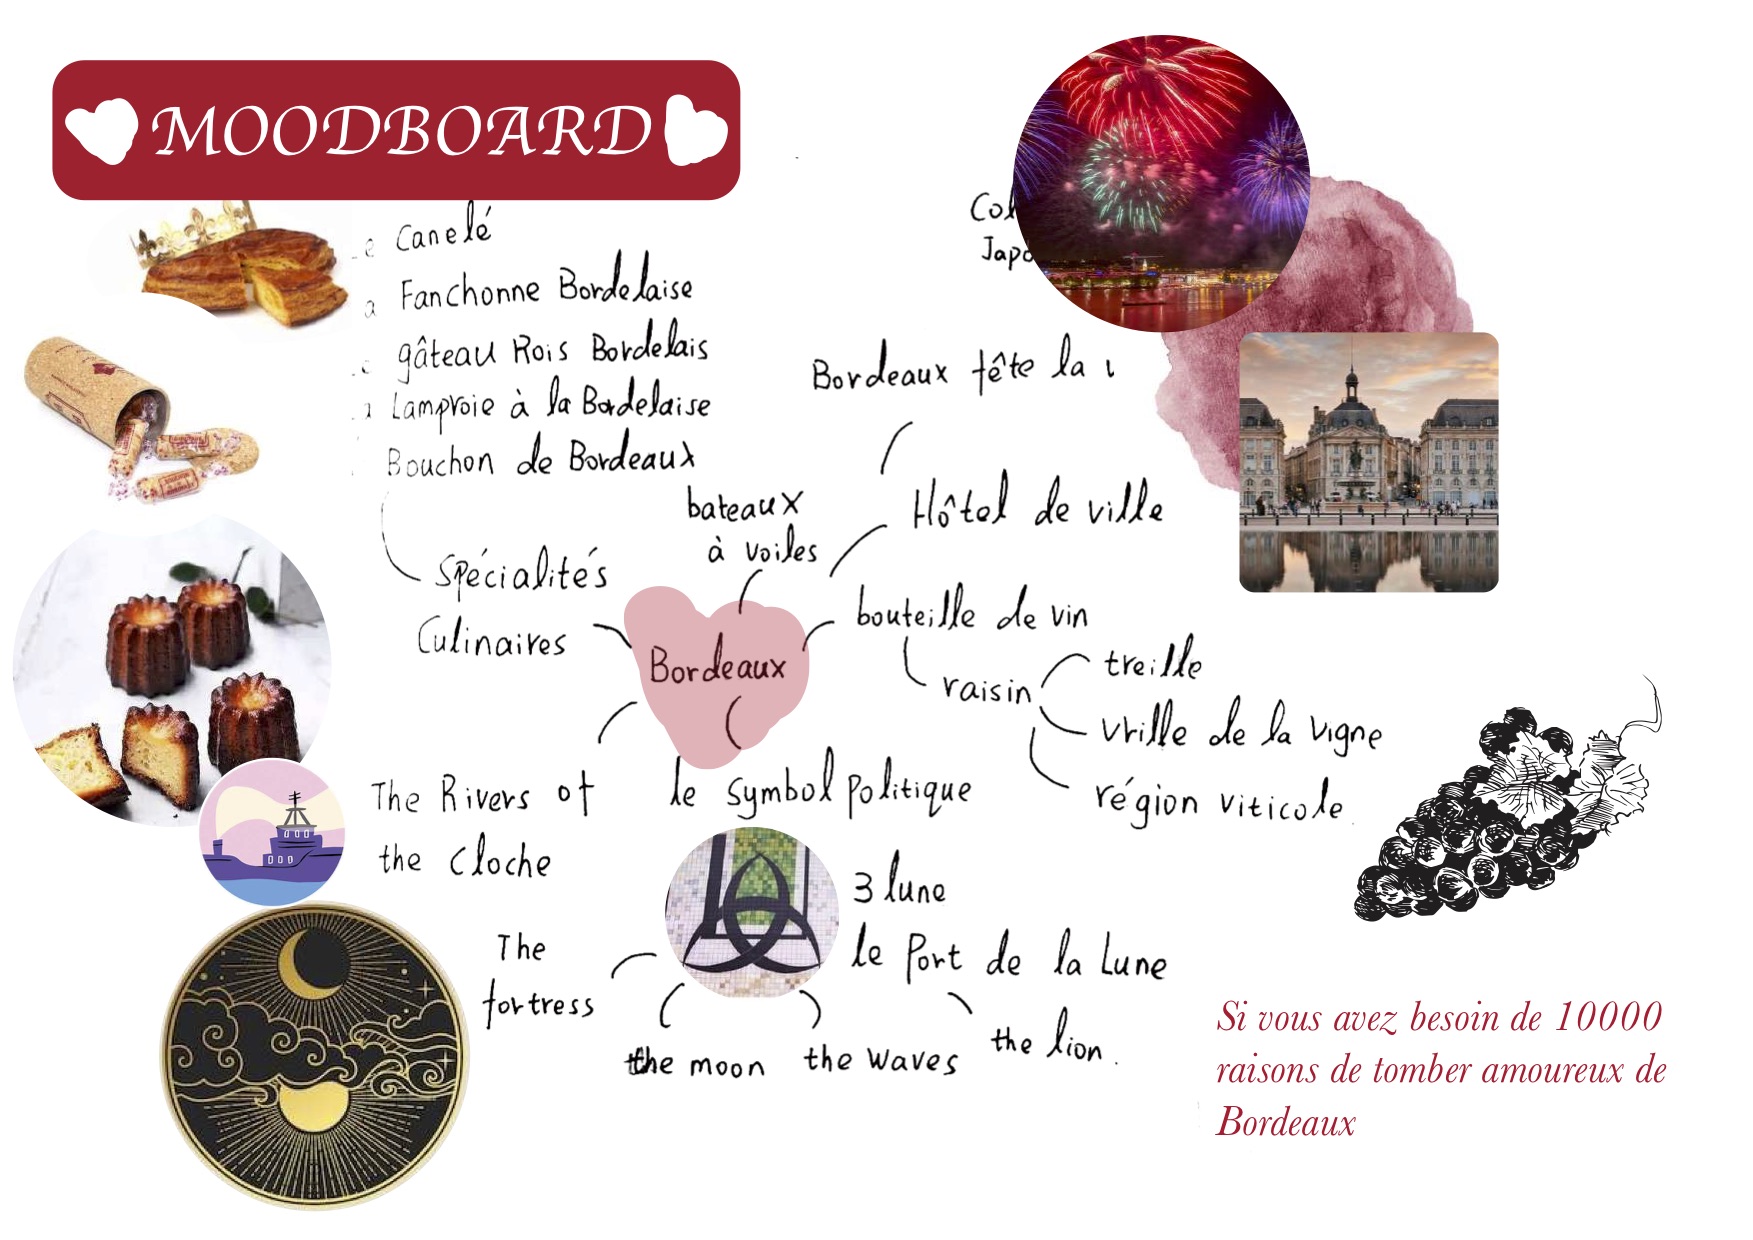 MOODBOARD
Canelé
Fanchonne Bordelaise
gâteau Rois Bordelais
Lamproie à la Bordelaise
Bouchon de Bordeaux
Spécialités
Culinaires
bateaux
à voiles
Bordeaux fête la
Hôtel de ville
bouteille de vin
raisin
treille
vrille de la vigne
région viticole
Bordeaux
The Rivers of
the Cloche
le symbol politique
3 lune
le Port de la Lune
The
fortress
the moon
the waves
the lion.
Si vous avez besoin de 10000
raisons de tomber amoureux de
Bordeaux